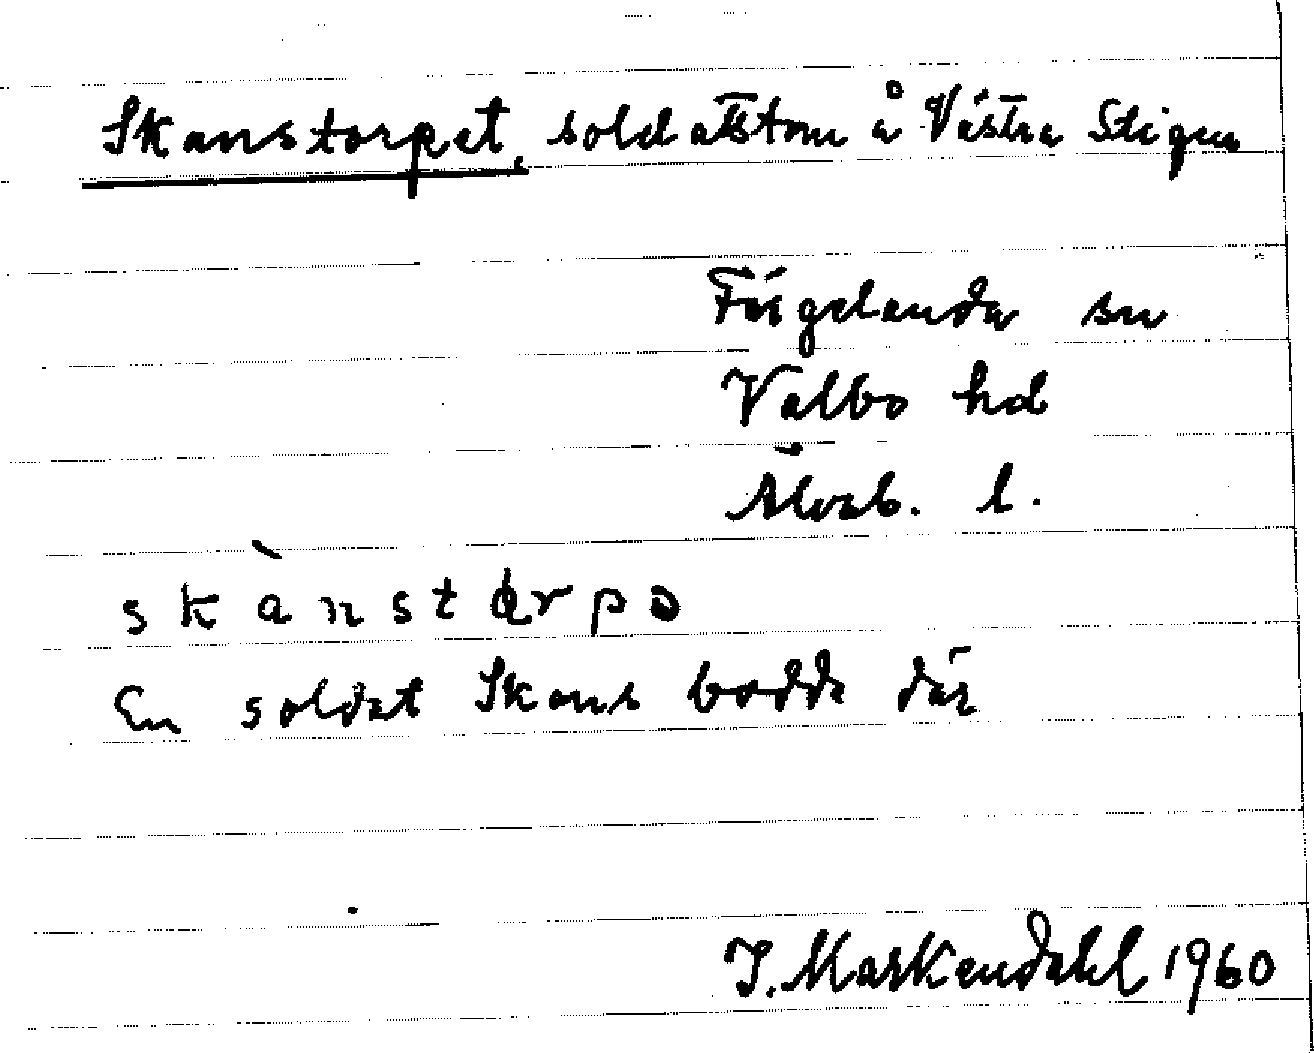 Skanstorpet, soldattorp å Västra Stigen
Färgelanda sn
Valbo hd
Älvsb. l.
skànstɷrpə
En soldat Skans bodde där
J. Markendahl 1960